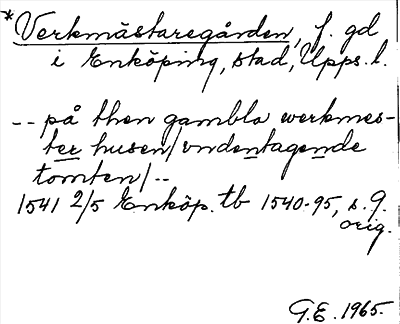 *Verkmästaregården, f. gd
i Enköping, stad, Upps. l.
-- på then gambla werkmes-
ter husen/vndentagende
tomten/--
1541 2/5 Enköp. tb 1540-95, s. 9.
orig.
G.E. 1965.